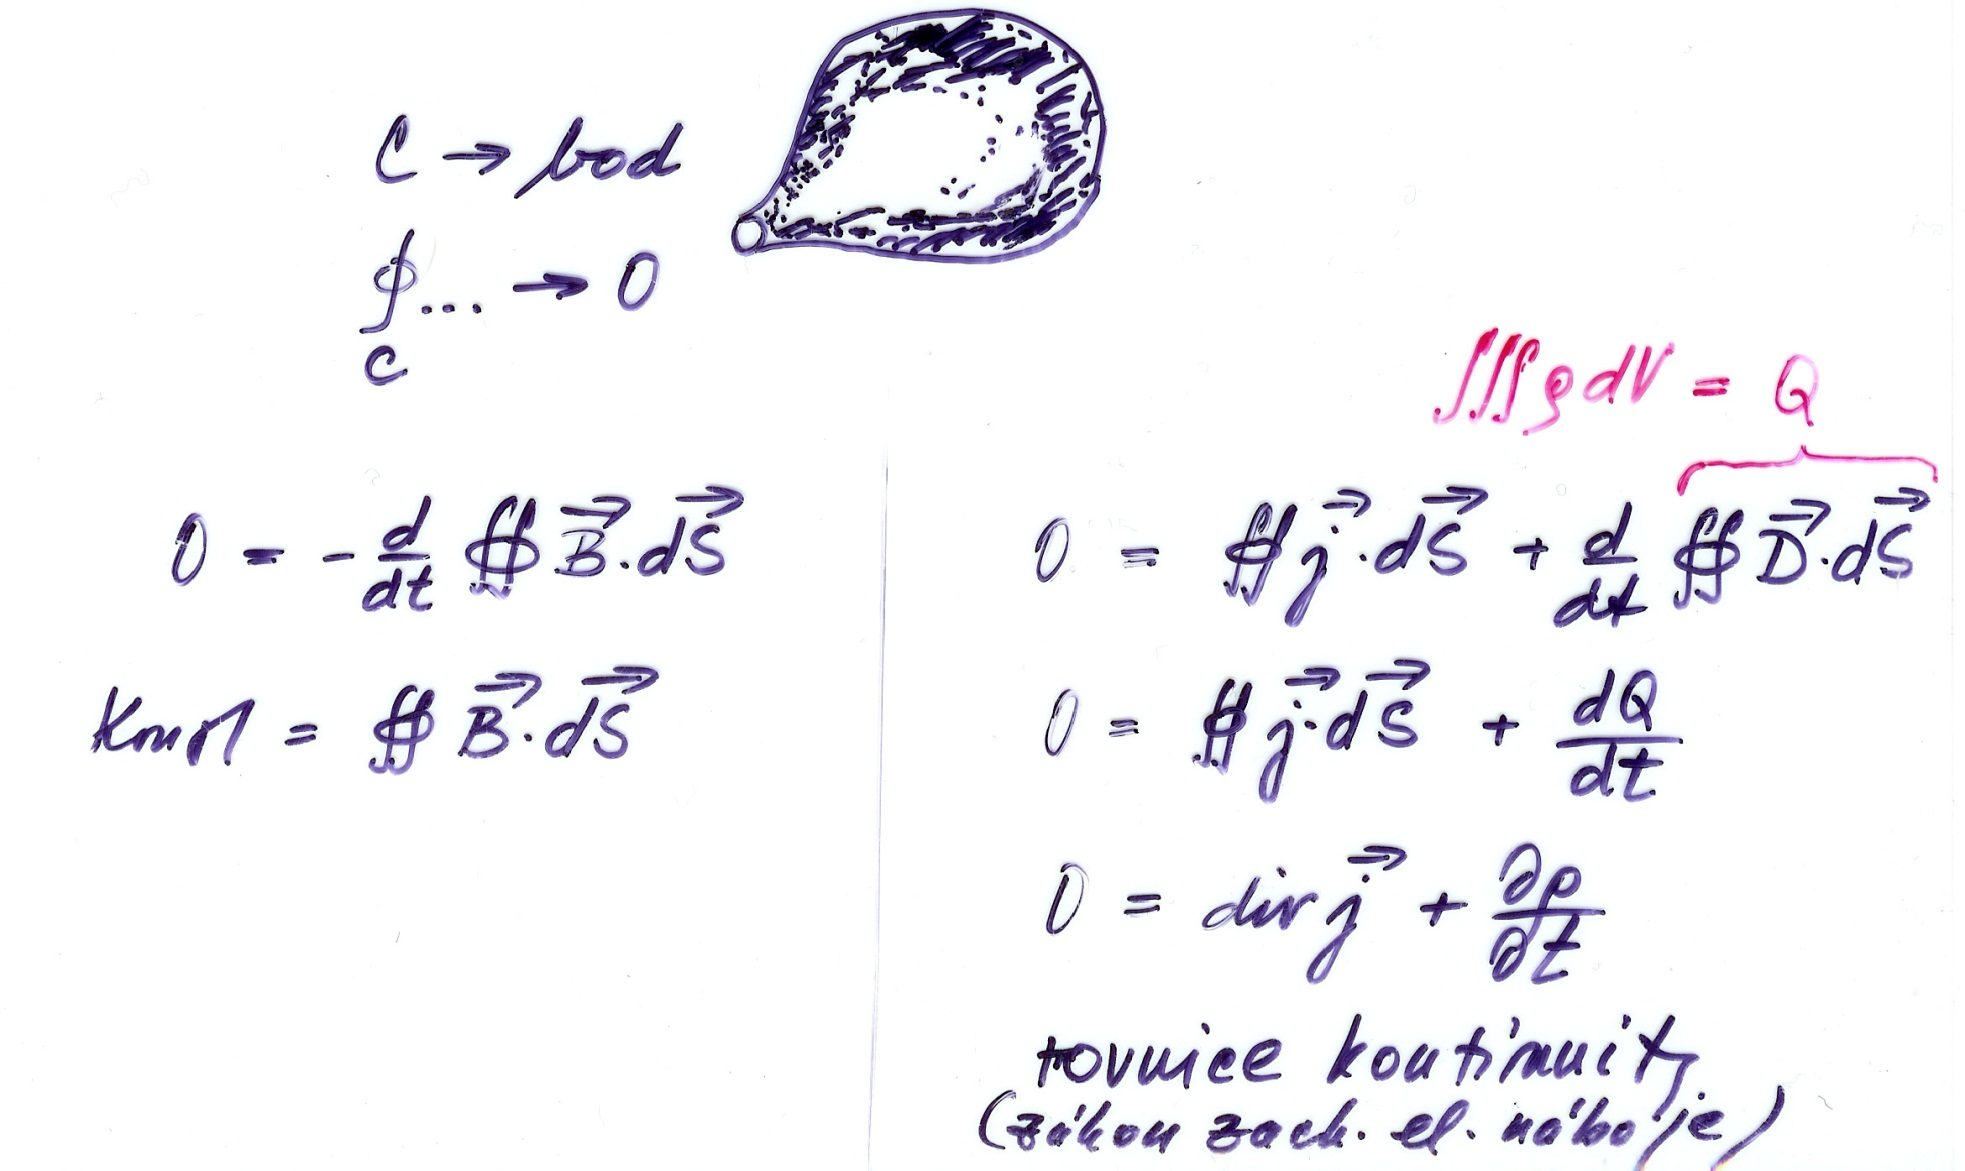 C → bod
∮... → 0
C
∭ρdV = Q
0 = - d/dt ∯ B⃗.dS⃗
konst = ∯ B⃗.dS⃗
0 = ∯ j⃗.dS⃗ + d/dt ∯ D⃗.dS⃗
0 = ∯ j⃗.dS⃗ + dQ/dt
0 = div j⃗ + ∂ρ/∂t
rovnice kontinuity
(zákon zach. el. náboje)